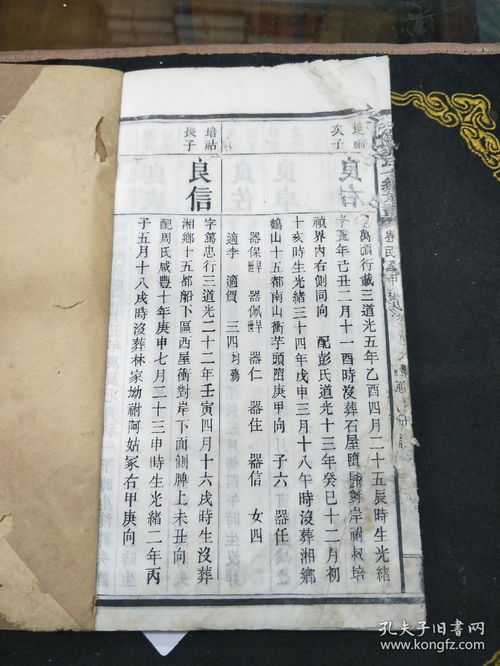 次子
良右
行載三道光五年乙酉四月二十五辰時生光緒
年己丑二月十一酉時沒葬石屋對岸祔叔培
禎界內右側同向 配彭氏道光十三年癸巳十二月初
十亥時生光緒三十四年戊申三月十八午時沒葬湘鄉
鶴山十五都南山衝芋頭庚甲向 子六 器任
器保 器佩 器仁 器住 器信 女四
適李 適賀 三四均殤
培祜
長子
良信
字篤忠行三道光二十二年壬寅四月十六戌時生沒葬
湘鄉十五都船下區西屋衝對岸下面側脾上未丑向
配周氏咸豐十年庚申七月二十三申時生光緒二年丙
子五月十八戌時沒葬林家坳祔阿姑冢右甲庚向
孔夫子旧書网
www.kongfz.com